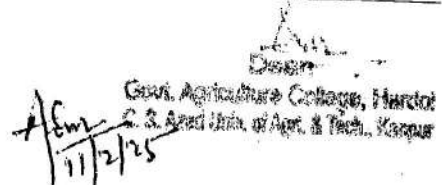 Dean
Govt. Agriculture College, Hardoi
C. S. Azad Univ. of Agri. & Tech., Kanpur
11/2/25